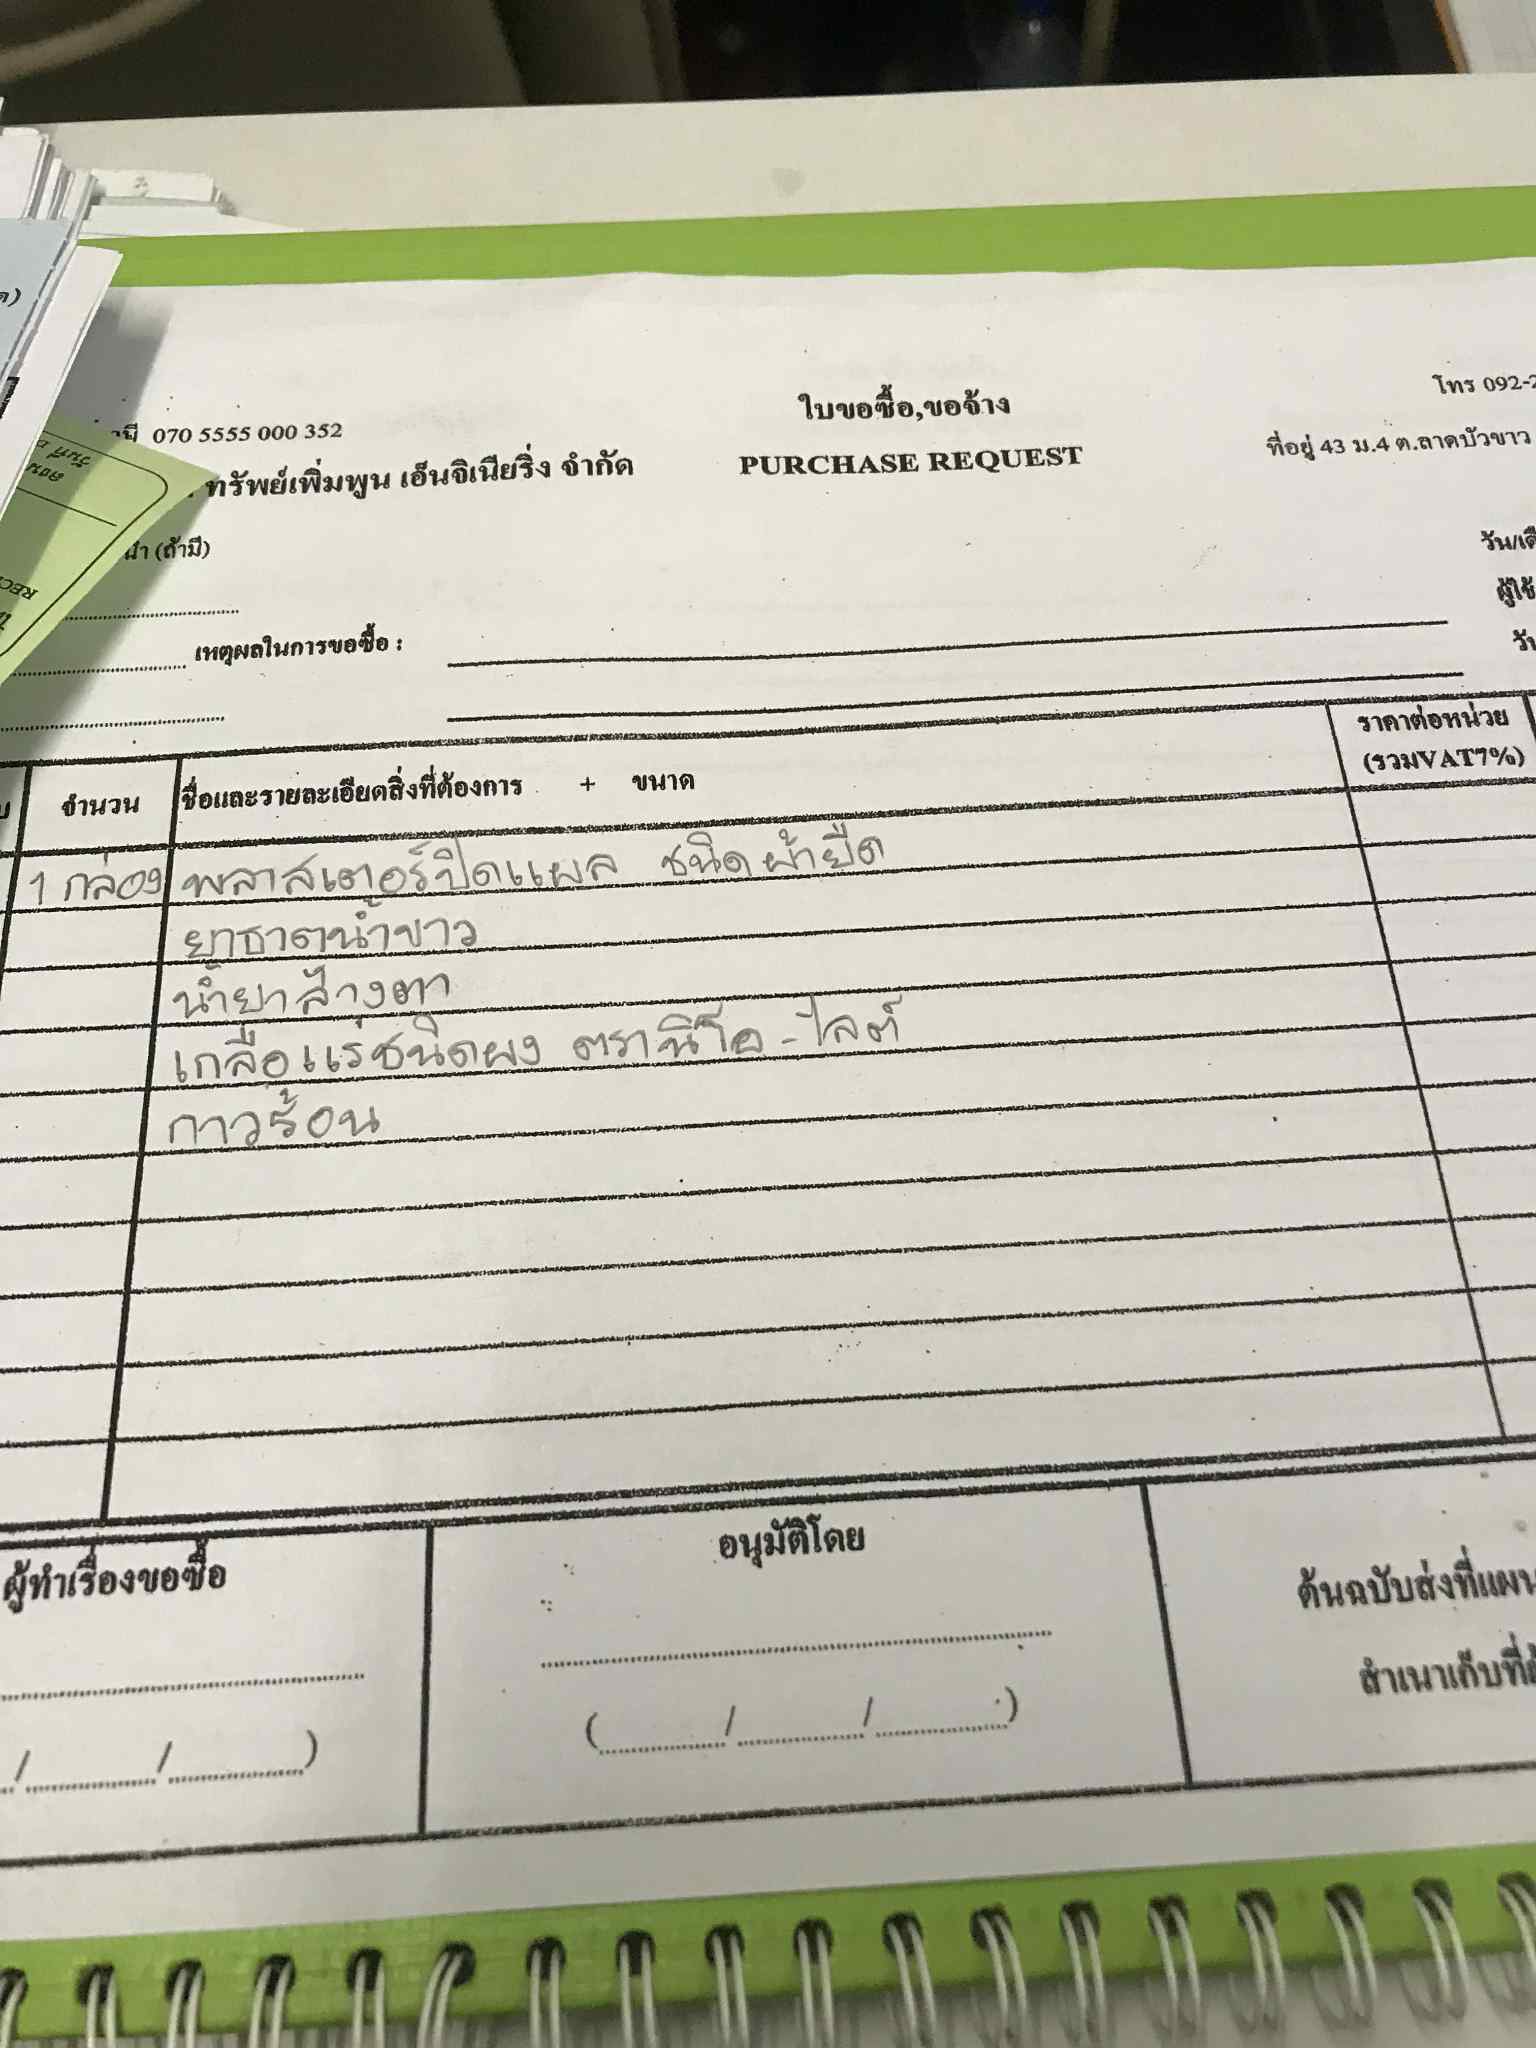 ใบขอซื้อ,ขอจ้าง
PURCHASE REQUEST
โทร 092-2
070 5555 000 352
ทรัพย์เพิ่มพูน เอ็นจิเนียริ่ง จำกัด
ที่อยู่ 43 ม.4 ต.ลาดบัวขาว
(ถ้ามี)
วัน/เดื
ผู้ใช้
วัน
เหตุผลในการขอซื้อ :
จำนวน ชื่อและรายละเอียดสิ่งที่ต้องการ + ขนาด ราคาต่อหน่วย
(รวมVAT7%)
1 กล่อง พลาสเตอร์ปิดแผล ชนิดผ้ายืด
ยาธาตุน้ำขาว
น้ำยาล้างตา
เกลือแร่ชนิดผง ตรานีโอ-ไลต์
กาวร้อน
ผู้ทำเรื่องขอซื้อ
อนุมัติโดย
(......../......../........)
ต้นฉบับส่งที่แผน
สำเนาเก็บที่